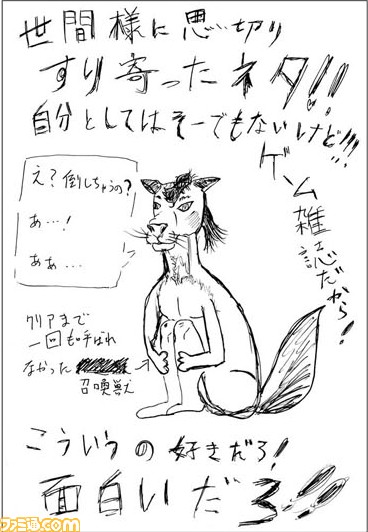 世間様に思い切り
すり寄ったネタ!!
自分としてはそーでもないけど!!!
ゲーム雑誌だから!
え?倒しちゃうの?
あ…!
ああ…
クリアまで
一回も呼ばれ
なかった
召喚獣
こういうの好きだろ!
面白いだろ!!!
ファミ通.com